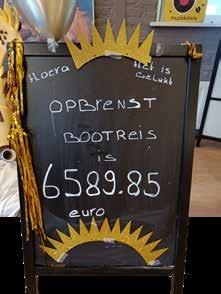 Hoera
Het is
Gelukt
OPBrENST
BOOTReis
is
6589.85
euro